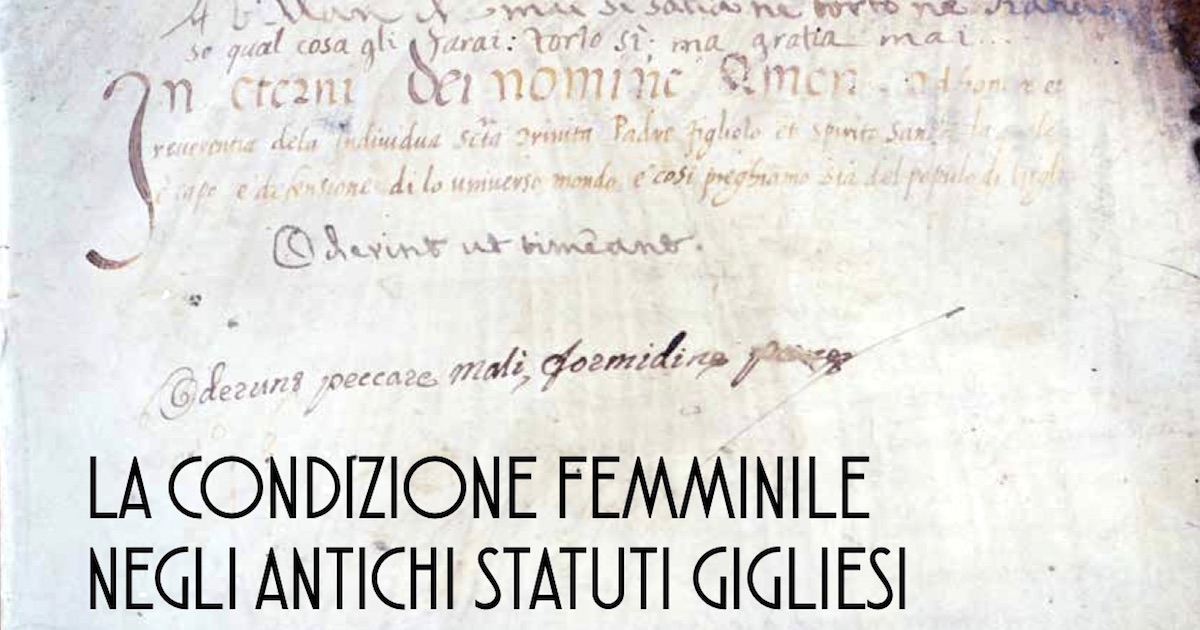 se qual cosa gli farai: torto sì: ma gratia mai...
In eterni dei nomine Amen. Ad honore et
reverentia dela Individua Scta Trinita Padre figliolo et spirito Santo la
è capo e defensione di lo universo mondo e cosi preghiamo sia del populo di
Oderint ut timeant.
Oderunt peccare mali, formidine
LA CONDIZIONE FEMMINILE
NEGLI ANTICHI STATUTI GIGLIESI